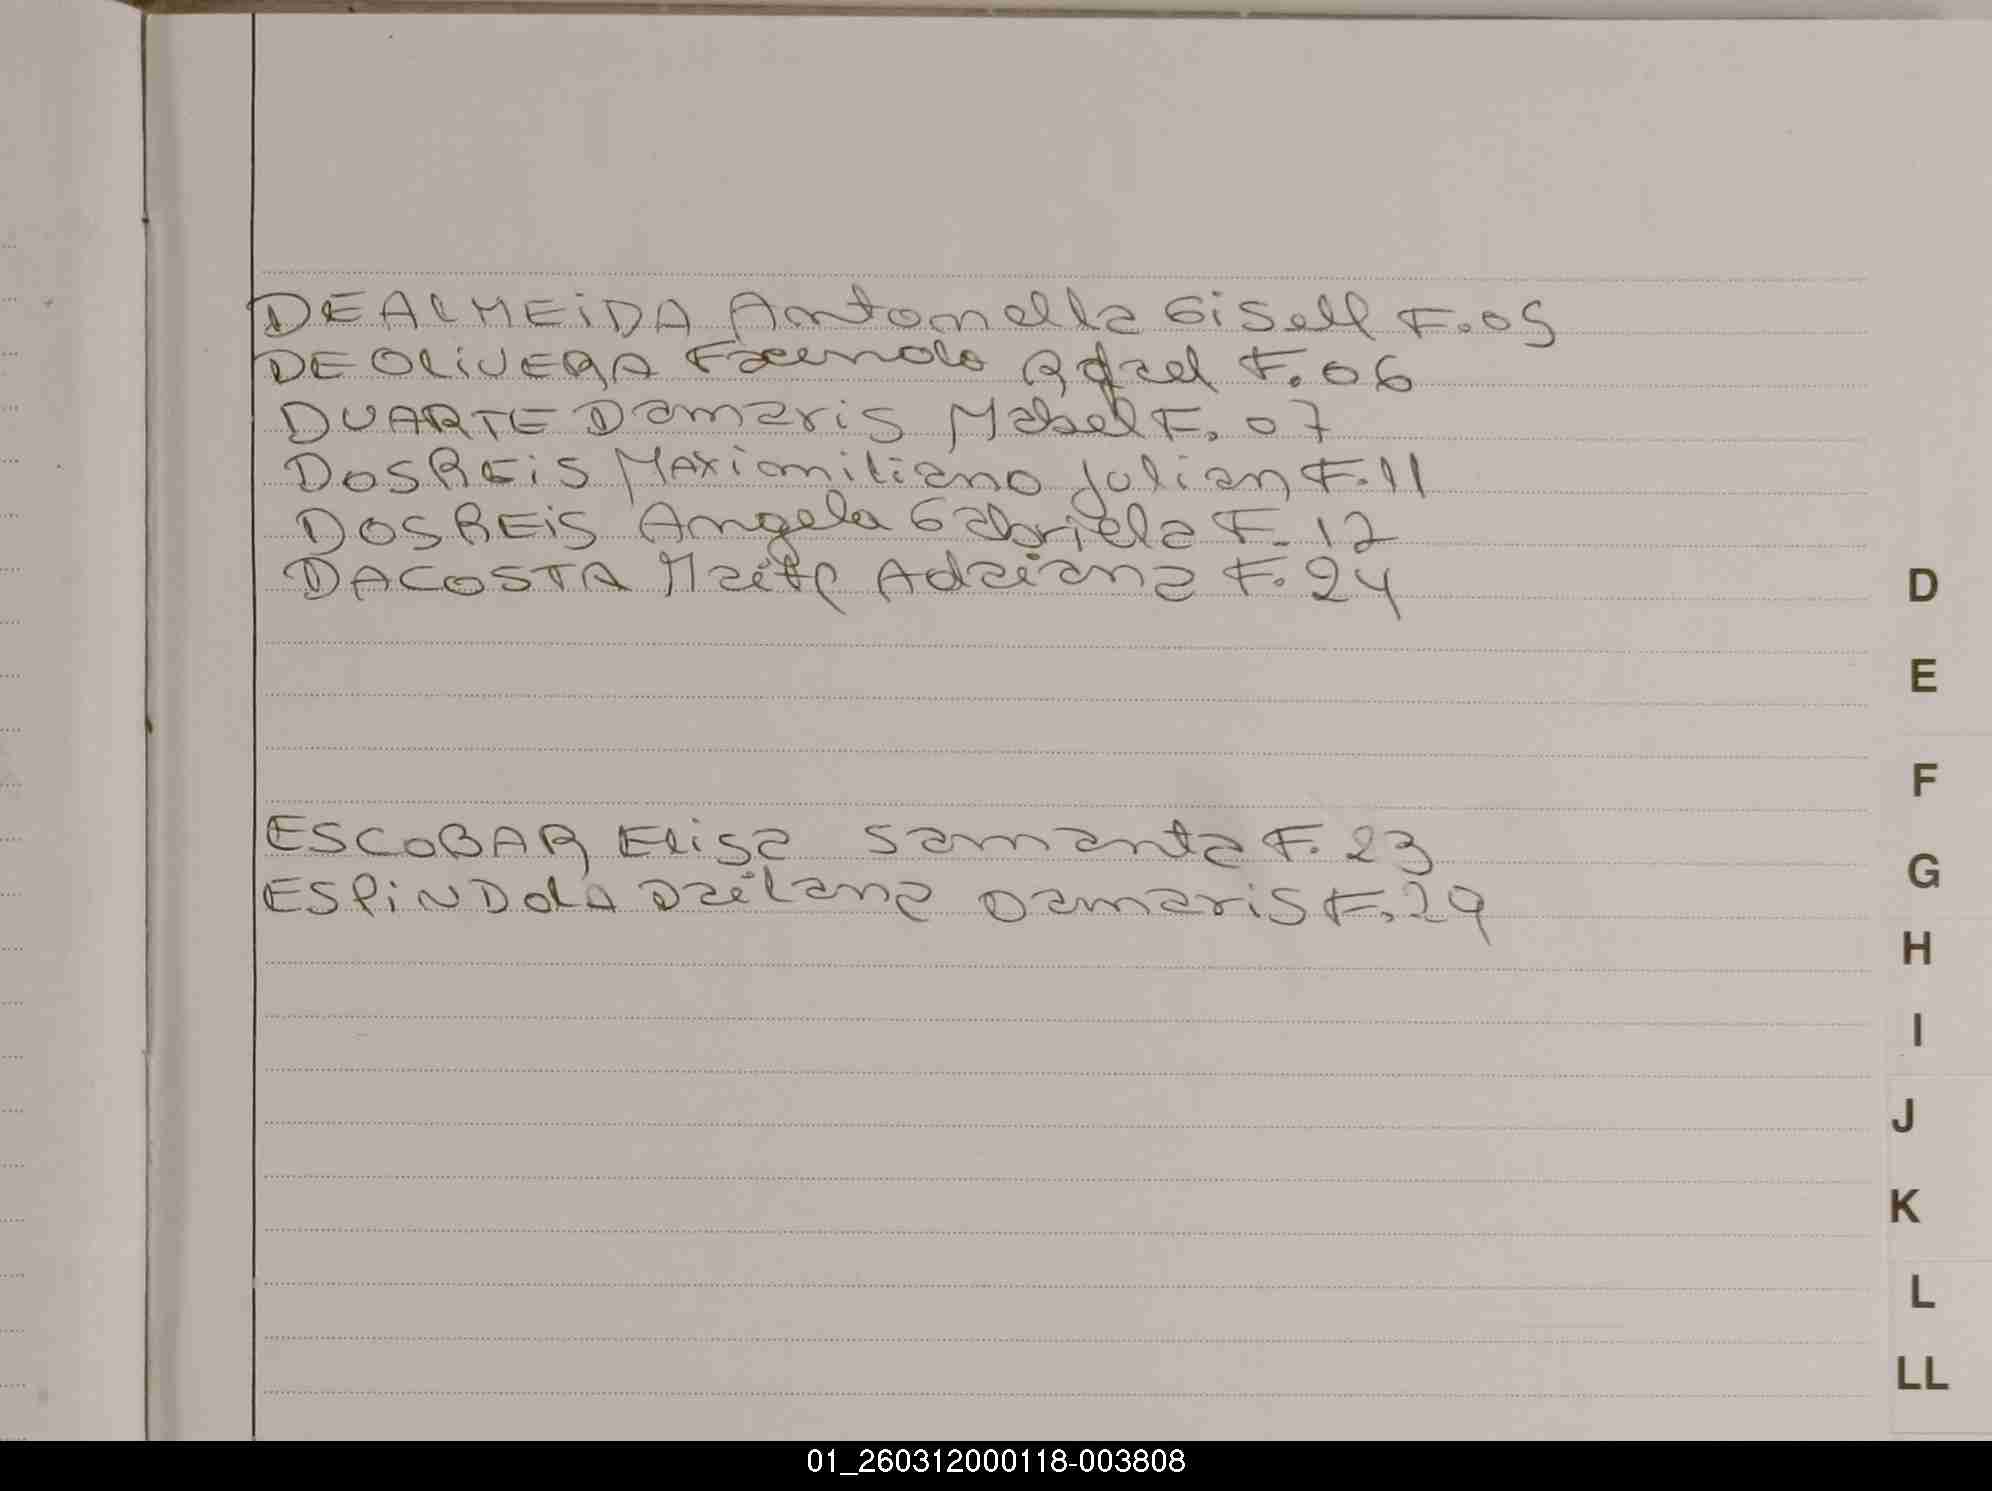 DEALMEiDA Antonella Gisell F.05
DE OLiVERA Facundo Rafael F.06
DUARTE Damaris Mabel F.07
DOSREiS MAXimiliano Julian F.11
DOSREiS Angela Gabriela F.12
DACOSTA Maite Adriana F.24
ESCOBAR Elisa Samanta F.23
ESPiNDOLA Damaris F.29
D
E
F
G
H
I
J
K
L
LL
01_260312000118-003808